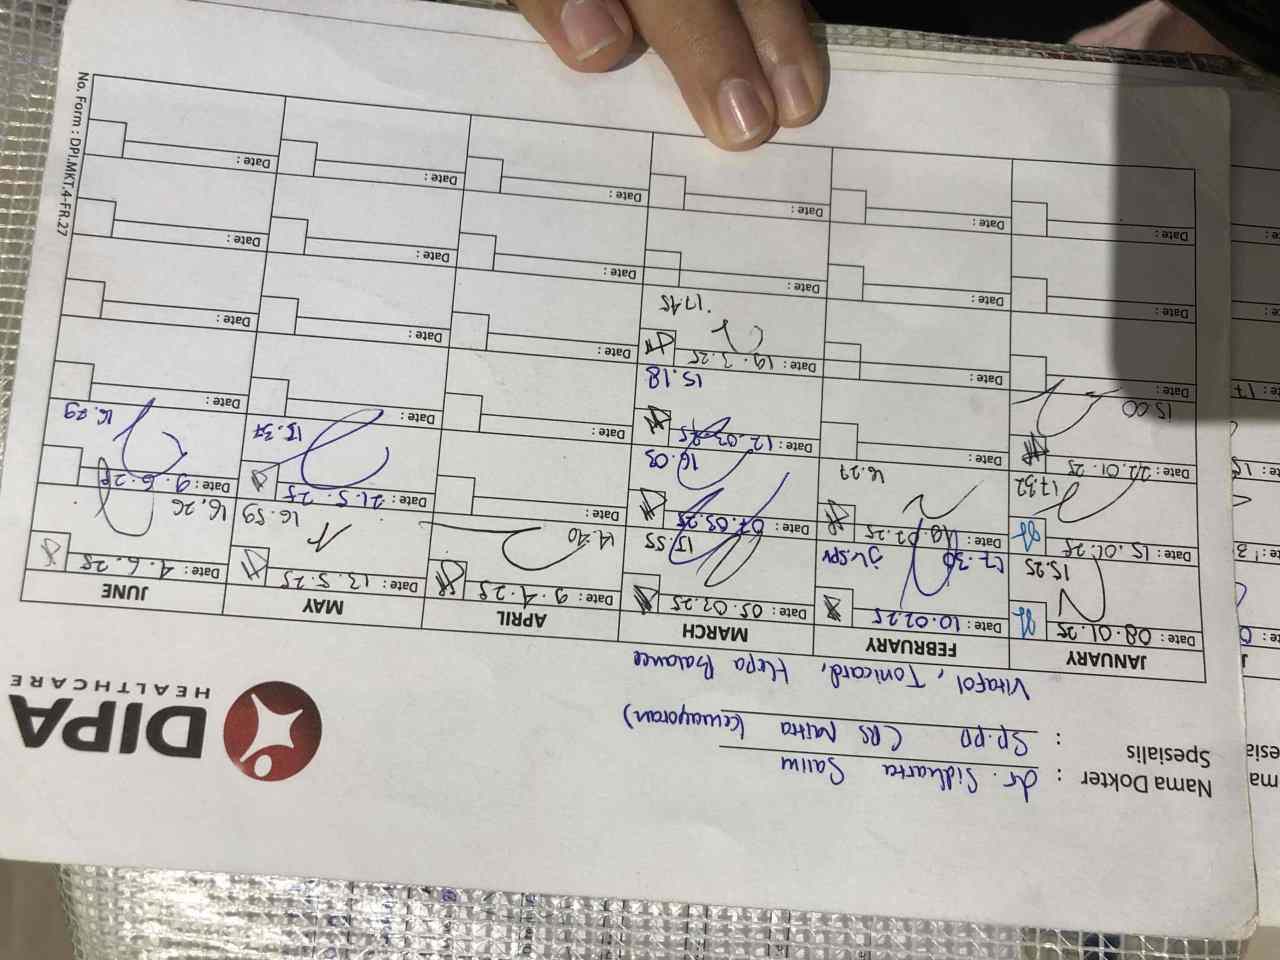 DIPA
HEALTHCARE
Nama Dokter : dr. Sidharta Salim
Spesialis : Sp.PD (RS Mitra Kemayoran)
Vitafol, Tonicard, Hepa Balance
JANUARY
Date : 08.01.25
15.25
Date : 15.01.25
17.32
Date : 22.01.25
15.00
Date :
Date :
Date :
FEBRUARY
Date : 10.02.25
17.30
jv.spv
Date : 19.02.25
16.27
Date :
Date :
Date :
Date :
MARCH
Date : 05.03.25
15.55
Date : 07.03.25
16.03
Date : 12.03.25
15.18
Date : 19.3.25
17.15
Date :
Date :
APRIL
Date : 9.4.25
14.20
Date :
Date :
Date :
Date :
Date :
MAY
Date : 13.5.25
16.59
Date : 21.5.25
15.37
Date :
Date :
Date :
Date :
JUNE
Date : 4.6.25
16.26
Date : 9.6.25
16.29
Date :
Date :
Date :
Date :
No. Form : DPI.MKT.4-FR.27